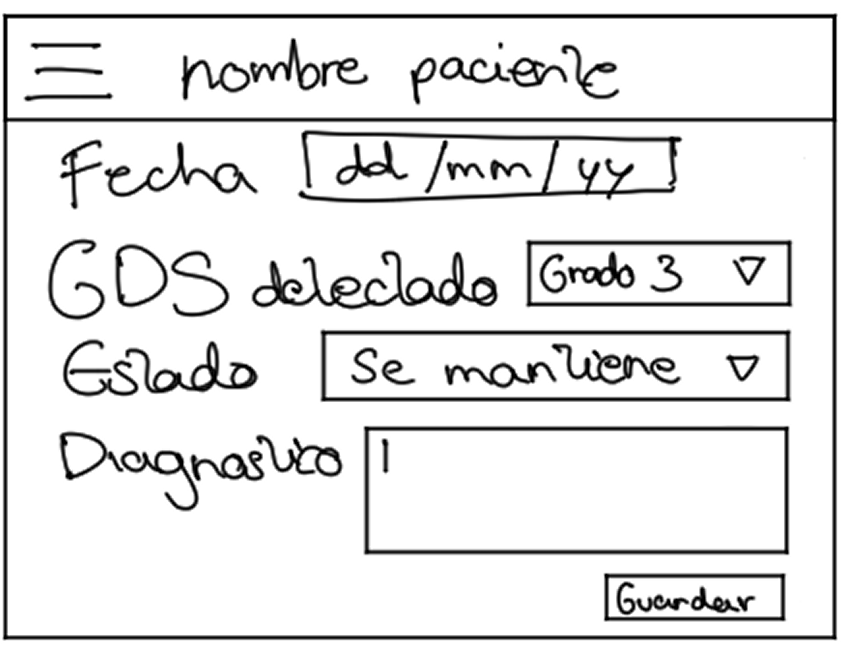 nombre paciente
Fecha dd/mm/yy
GDS detectado Grado 3
Estado Se mantiene
Diagnostico
Guardar